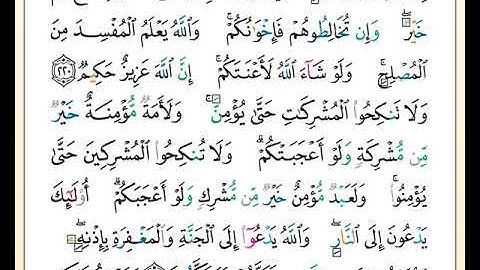 خَيْرٌ ۖ وَإِن تُخَالِطُوهُمْ فَإِخْوَٰنُكُمْ ۚ وَٱللَّهُ يَعْلَمُ ٱلْمُفْسِدَ مِنَ
ٱلْمُصْلِحِ ۚ وَلَوْ شَآءَ ٱللَّهُ لَأَعْنَتَكُمْ ۚ إِنَّ ٱللَّهَ عَزِيزٌ حَكِيمٌ ٢٢٠
وَلَا تَنكِحُوا۟ ٱلْمُشْرِكَٰتِ حَتَّىٰ يُؤْمِنَّ ۚ وَلَأَمَةٌ مُّؤْمِنَةٌ خَيْرٌ
مِّن مُّشْرِكَةٍ وَلَوْ أَعْجَبَتْكُمْ ۗ وَلَا تُنكِحُوا۟ ٱلْمُشْرِكِينَ حَتَّىٰ
يُؤْمِنُوا۟ ۚ وَلَعَبْدٌ مُّؤْمِنٌ خَيْرٌ مِّن مُّشْرِكٍ وَلَوْ أَعْجَبَكُمْ ۗ أُو۟لَٰٓئِكَ
يَدْعُونَ إِلَى ٱلنَّارِ ۖ وَٱللَّهُ يَدْعُوٓا۟ إِلَى ٱلْجَنَّةِ وَٱلْمَغْفِرَةِ بِإِذْنِهِۦ ۖ